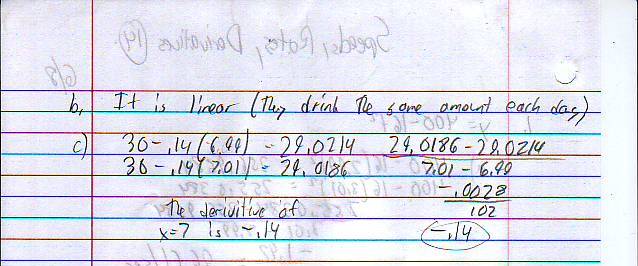 b, It is linear (They drink the same amount each day)
c) 30-.14(6.99) = 29.0214 29.0186-29.0214
30-.14(7.01) = 29.0186 7.01 - 6.99
-.0028
The derivitive of .02
x=7 is -.14 -.14